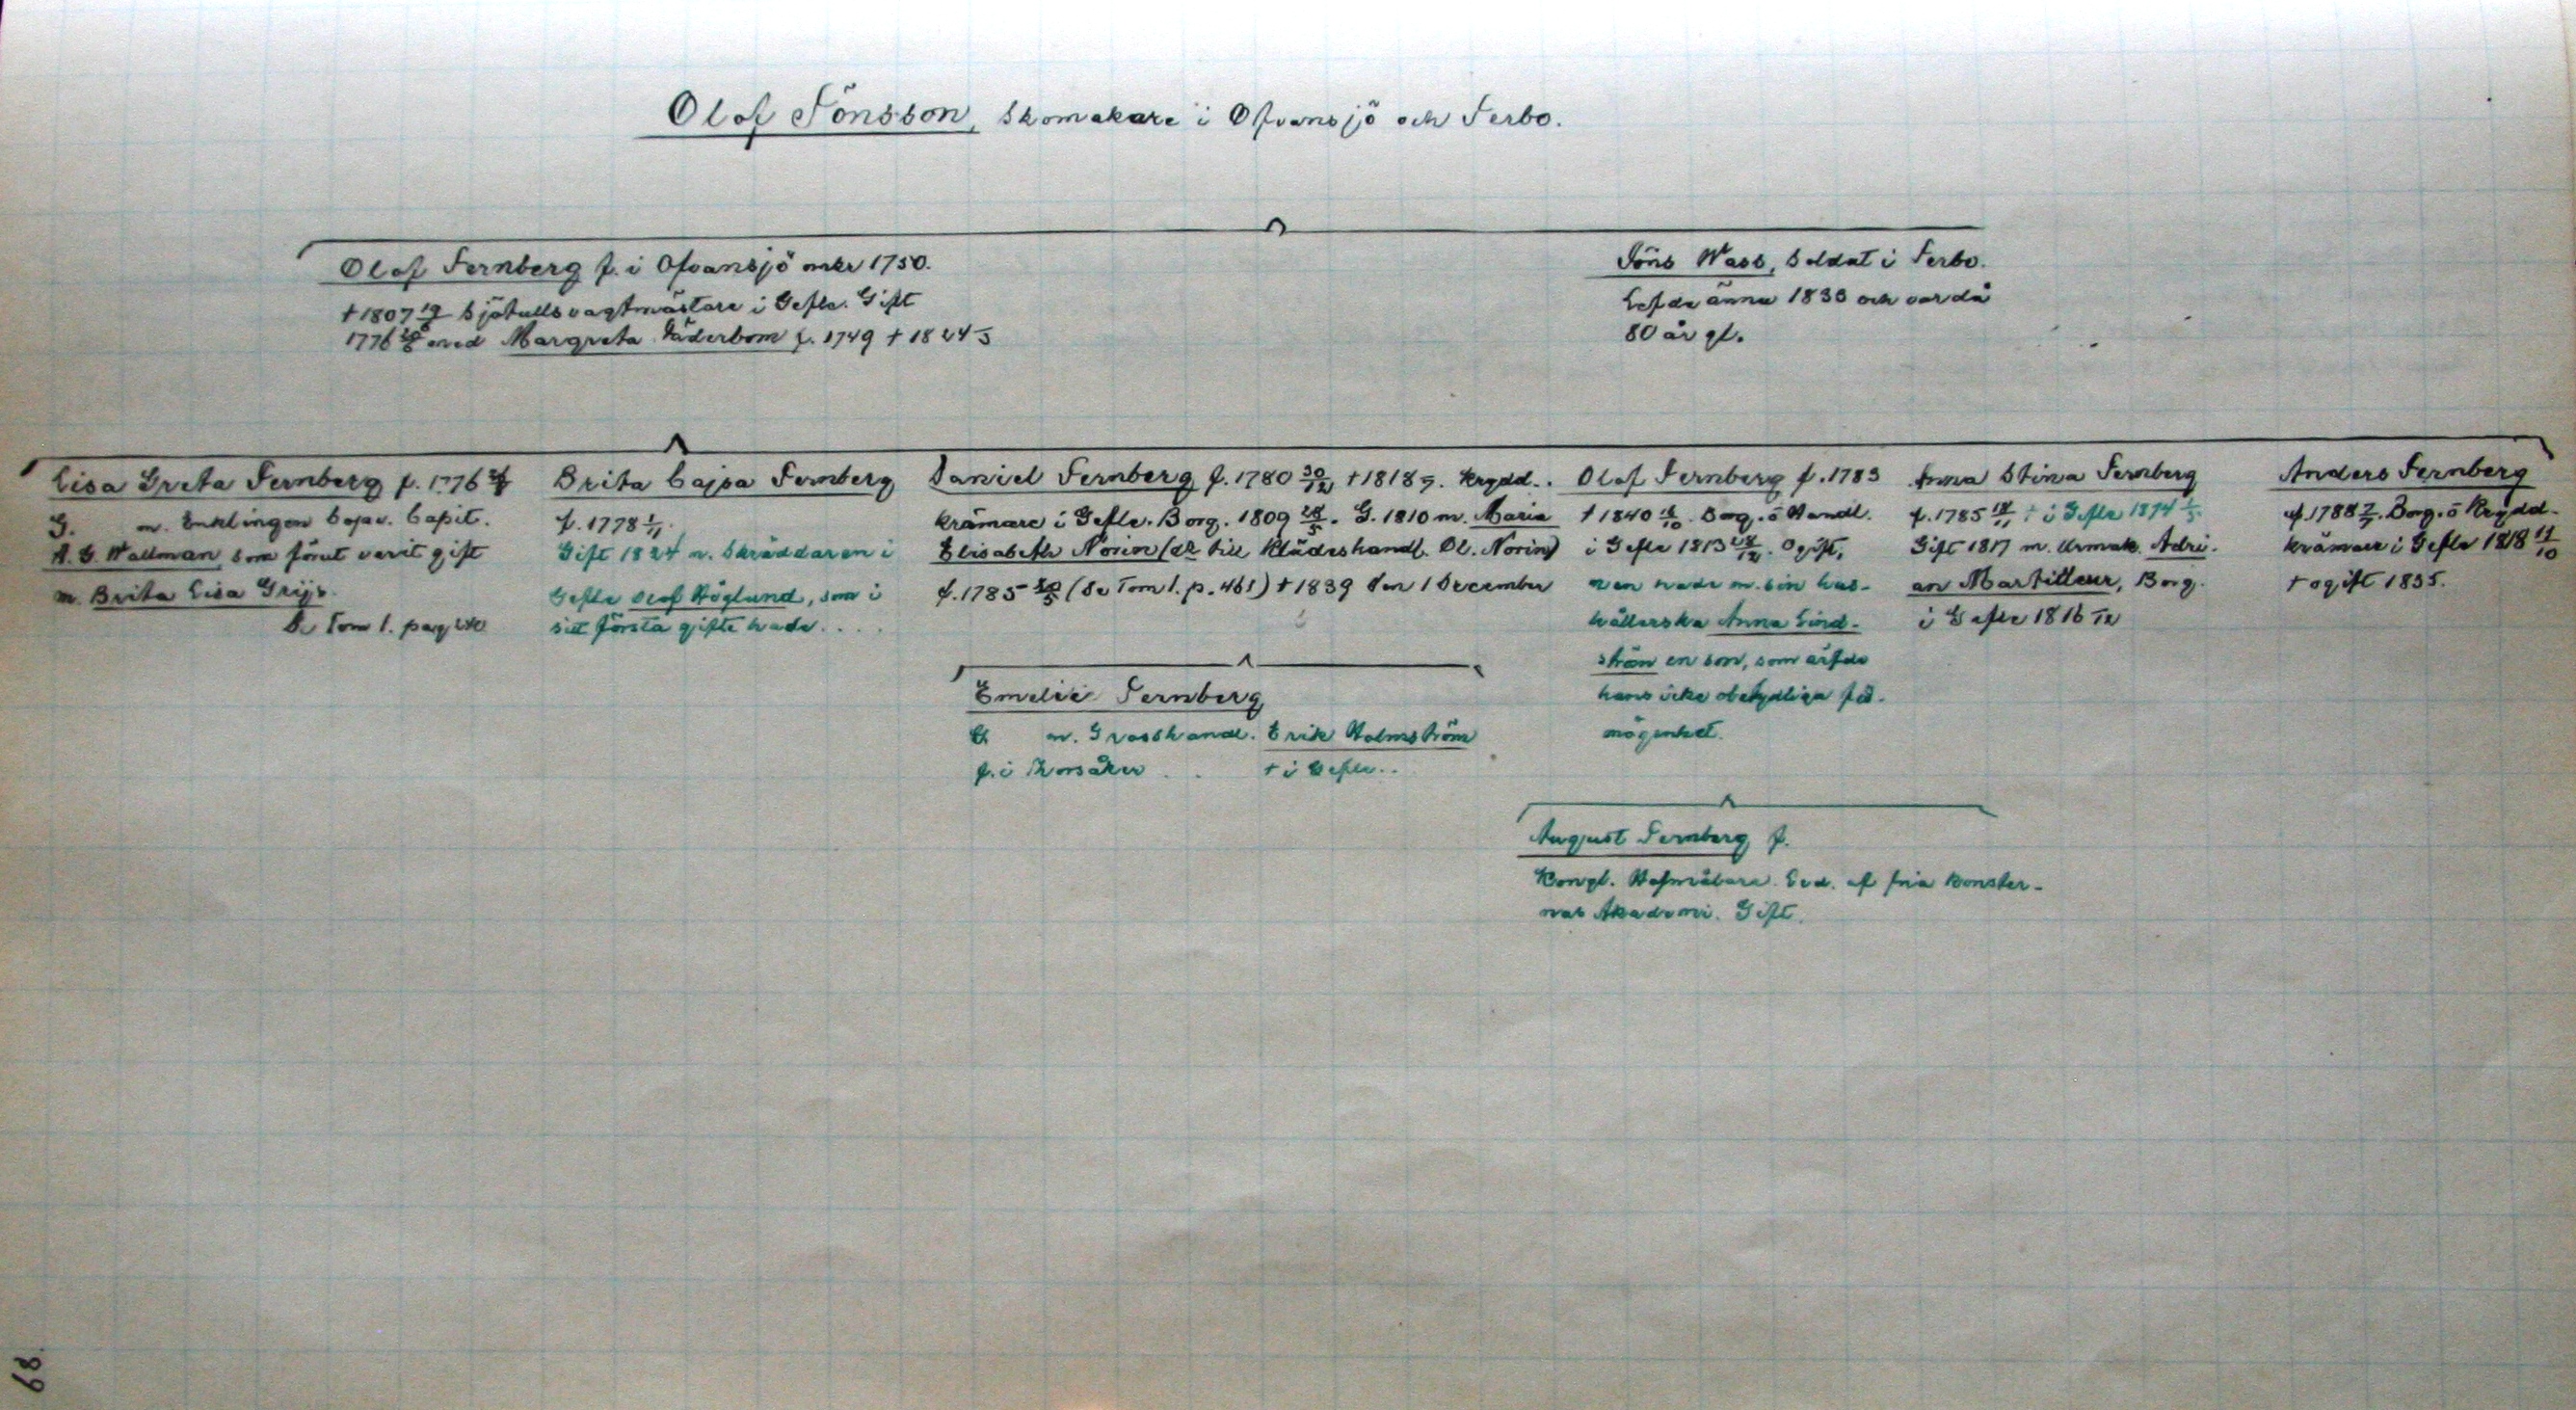 Olof Jönsson, Skomakare i Ofvansjö och Ferbo.
Olof Fernberg f. i Ofvansjö 1750.
† 1807 19/8 Sjötullsvagtmästare i Gefle. Gift
1776 med Margreta Söderbom f. 1749 † 1824
Jöns Wass, Soldat i Ferbo.
Lefde ännu 1833 och var då
80 år gl.
Lisa Greta Fernberg f. 1776
G. m. Enklingen Copv. Capit.
A. G. Wallman som förut varit gift
m. Brita Lisa Grijs.
Se Tom 1. pag
Brita Cajsa Fernberg
f. 1778 1/11.
Gift 1824 m. Skräddaren i
Gefle Olof Höglund, som i
sitt första gifte hade . . . .
Daniel Fernberg f. 1780 30/12 † 1818 Krydd.
krämare i Gefle. Borg. 1809 28/5. G. 1810 m. Maria
Elisabeth Norin (dr till Klädeshandl. Ol. Norin)
f. 1785 (Se Tom 1. p. 461) † 1839 den 1 December
Emelie Fernberg
G m. Grosshandl. Erik Holmström
f. i Thorsåker . . † i Gefle . .
Olof Fernberg f. 1783
† 1840 16/10. Borg. o Handl.
i Gefle 1813 28/12. Ogift,
men hade m. sin hus-
hållerska Anna Lind-
ström en son, som ärfde
hans icke obetydliga för-
mögenhet.
August Fernberg f.
Kongl. Hofmålare. Led. af fria konster-
nas Akademi. Gift.
Anna Stina Fernberg
f. 1785 18/11 † i Gefle 1874
Gift 1817 m. Urmak. Adri-
an Martilleur, Borg.
i Gefle 1816
Anders Fernberg
f. 1788 2/7. Borg. o Krydd-
krämare i Gefle 1818 14/10
† ogift 1835.
68.